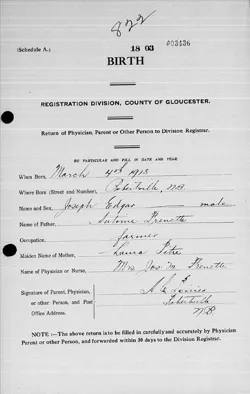 822
(Schedule A.) 18 03 003436
BIRTH
REGISTRATION DIVISION, COUNTY OF GLOUCESTER.
Return of Physician, Parent or Other Person to Division Registrar.
BE PARTICULAR AND FILL IN DATE AND YEAR
When Born, March 4th 1913
Where Born (Street and Number), Robertville, N.B.
Name and Sex, Joseph Edgar male
Name of Father, Antoine Frenette
Occupation, farmer
Maiden Name of Mother, Laura Pitre
Name of Physician or Nurse, Mrs Jos. M. Frenette
Signature of Parent, Physician,
or other Person, and Post
Office Address. Robertville
N.B.
NOTE :—The above return is to be filled in carefully and accurately by Physician
Parent or other Person, and forwarded within 30 days to the Division Registrar.